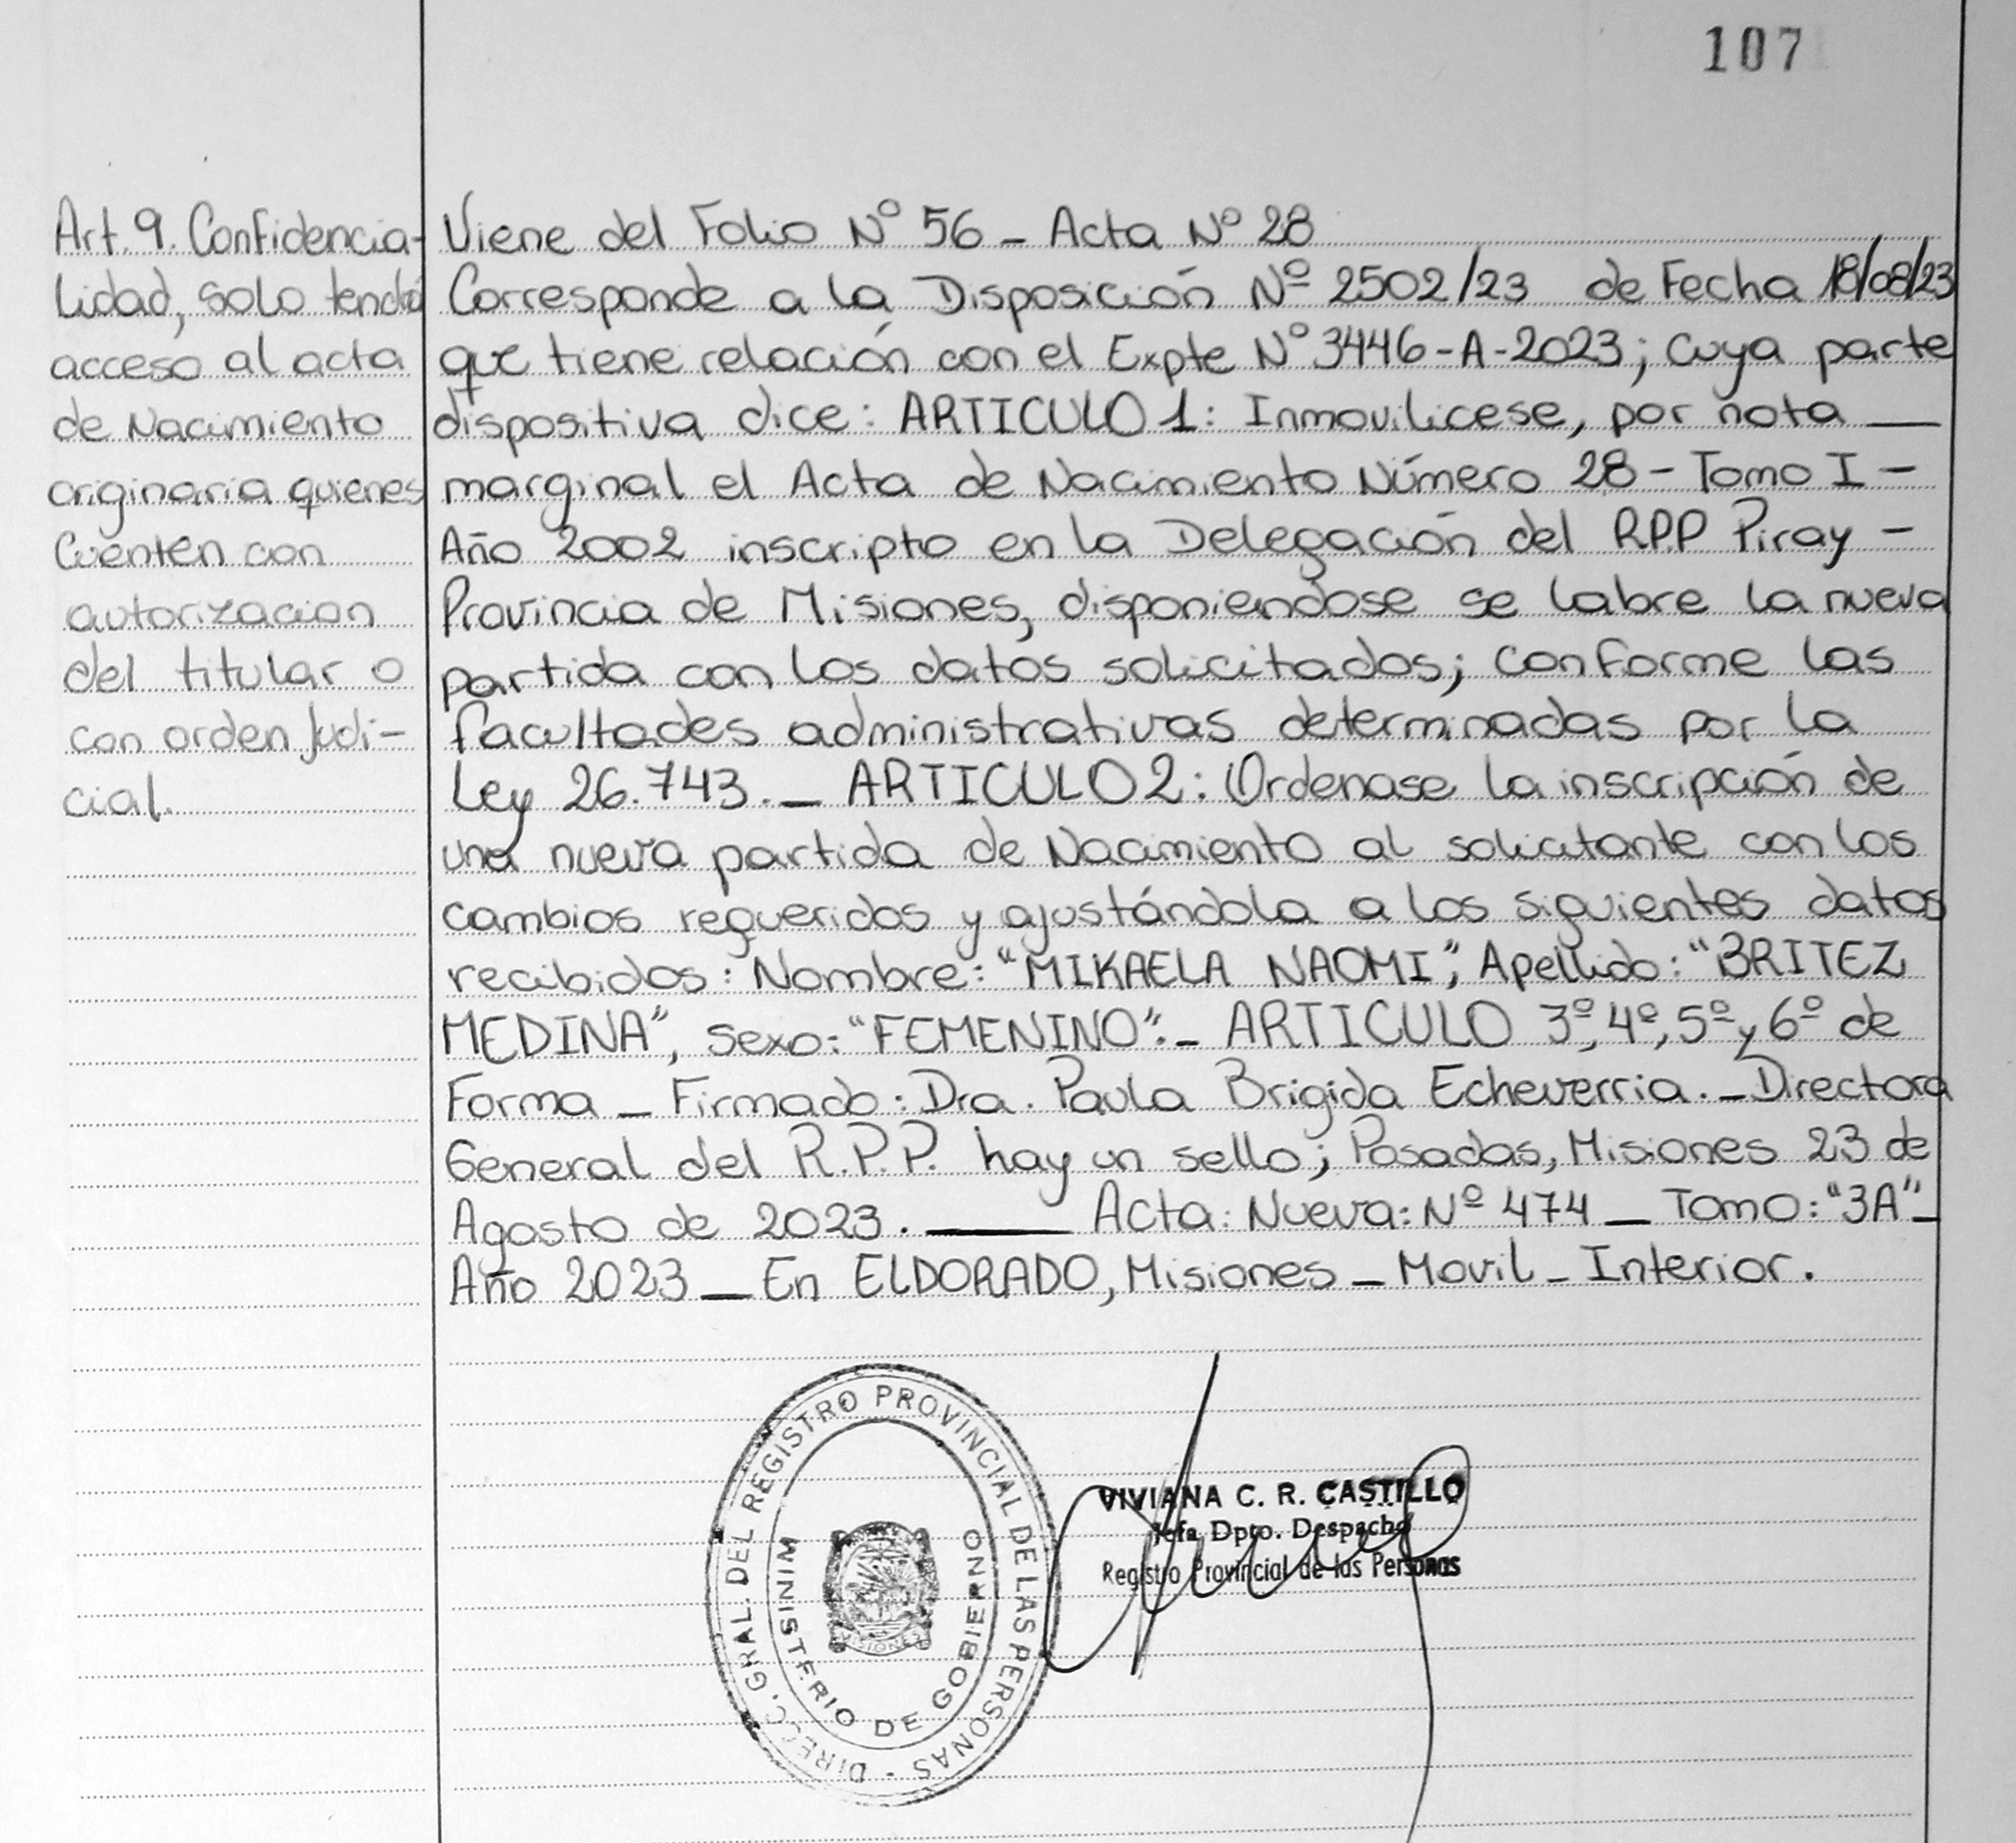 107
Art. 9. Confidencia-
lidad, solo tendrá
acceso al acta
de Nacimiento
originaria quienes
Cuenten con
autorizacion
del titular o
con orden Judi-
cial.
Viene del Folio Nº 56 - Acta Nº 28
Corresponde a la Disposición Nº 2502/23 de Fecha 18/08/23
que tiene relación con el Expte Nº 3446-A-2023; cuya parte
dispositiva dice: ARTICULO 1: Inmovilicese, por nota __
marginal el Acta de Nacimiento Número 28 - Tomo I -
Año 2002 inscripto en la Delegación del R.P.P Piray -
Provincia de Misiones, disponiendose se labre la nueva
partida con los datos solicitados; conforme las
facultades administrativas determinadas por la
Ley 26.743._ ARTICULO 2: Ordenase la inscripción de
una nueva partida de Nacimiento al solicitante con los
cambios requeridos y ajustándola a los siguientes datos
recibidos: Nombre: "MIKAELA NAOMI", Apellido: "BRITEZ
MEDINA", sexo: "FEMENINO"._ ARTICULO 3º, 4º, 5º y 6º de
Forma _ Firmado: Dra. Paula Brigida Echeverria._ Directora
General del R.P.P. hay un sello; Posadas, Misiones 23 de
Agosto de 2023. ____ Acta: Nueva: Nº 474 _ Tomo: "3A" _
Año 2023 _ En ELDORADO, Misiones _ Movil _ Interior.
DIRECC. GRAL. DEL REGISTRO PROVINCIAL DE LAS PERSONAS -
MINISTERIO DE GOBIERNO
MISIONES
VIVIANA C. R. CASTILLO
Jefa Dpto. Despacho
Registro Provincial de las Personas